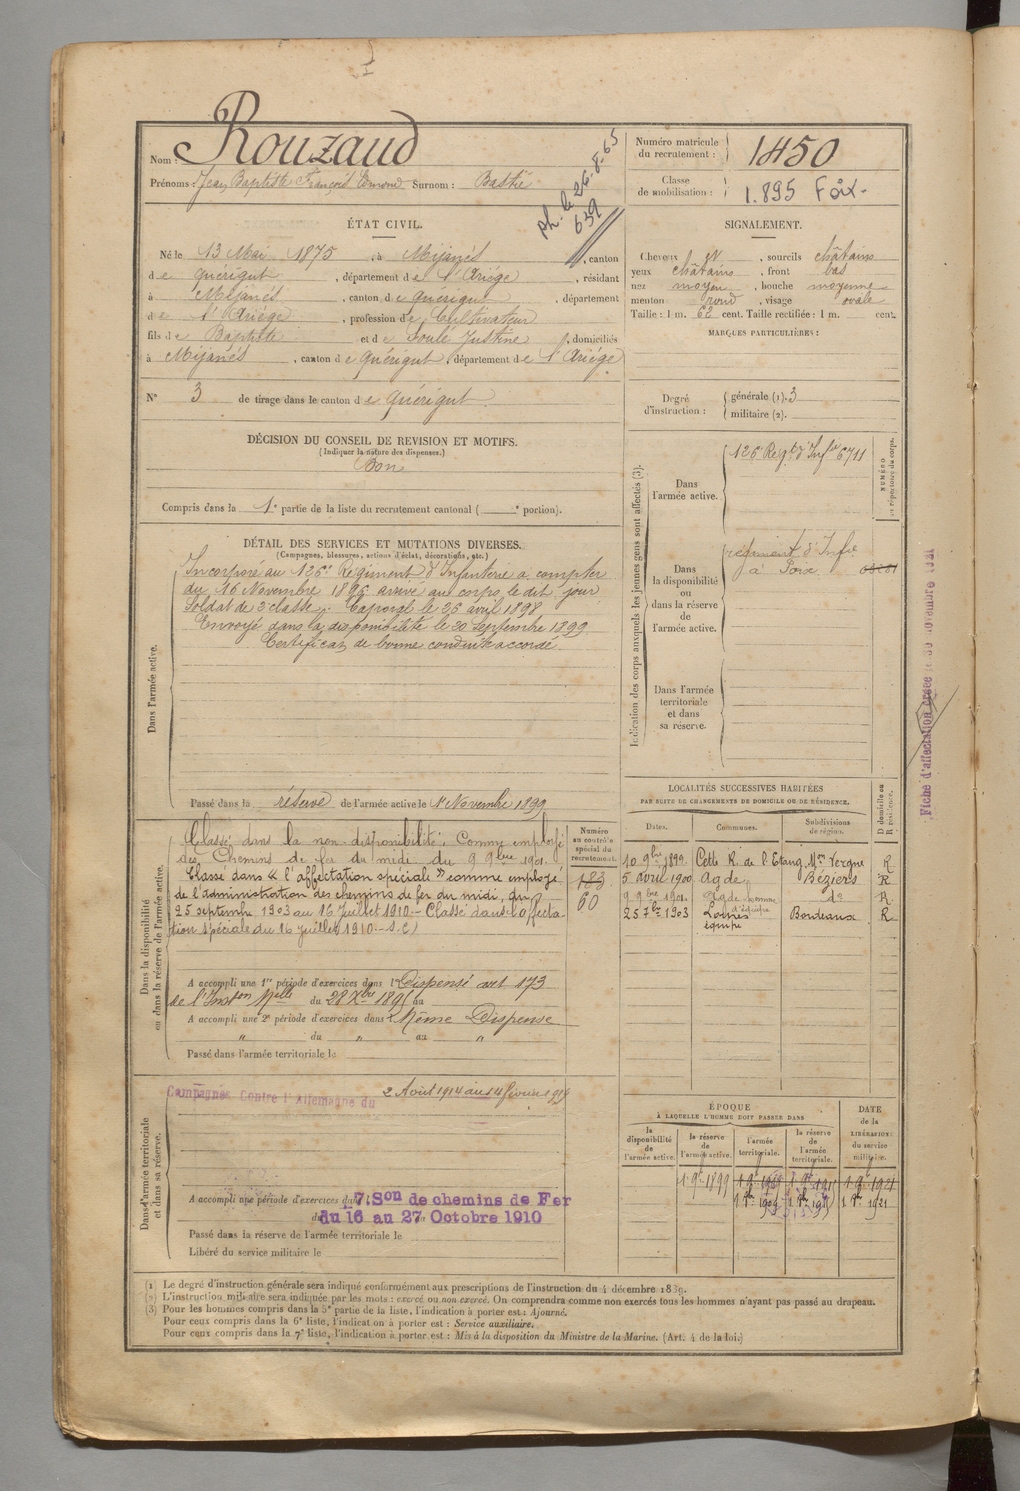 Nom : Rouzaud
Prénoms : Jean Baptiste François Edmond Surnom : Bastié
ph. le 26.8.65
639
Numéro matricule du recrutement : 1450
Classe de mobilisation : 1.895 Foix.
ÉTAT CIVIL.
Né le 13 Mai 1875, à Mijanés, canton
de Quérigut, département de l'Ariége, résidant
à Mijanés, canton de Quérigut, département
de l'Ariége, profession de Cultivateur
fils de Baptiste et de Soulé Justine, domiciliés
à Mijanés, canton de Quérigut, département de l'Ariége.
N° 3 de tirage dans le canton de Quérigut
DÉCISION DU CONSEIL DE REVISION ET MOTIFS.
(Indiquer la nature des dispenses.)
Bon
Compris dans la 1e partie de la liste du recrutement cantonal ( e portion).
SIGNALEMENT.
Cheveux et, sourcils châtains
yeux châtains, front bas
nez moyen, bouche moyenne
menton rond, visage ovale
Taille : 1 m. 62 cent. Taille rectifiée : 1 m. cent.
MARQUES PARTICULIÈRES :
Degré d'instruction : générale (1). 3
militaire (2).
DÉTAIL DES SERVICES ET MUTATIONS DIVERSES.
(Campagnes, blessures, actions d'éclat, décorations, etc.)
Dans l'armée active.
Incorporé au 126e Régiment d'Infanterie a compter
du 16 Novembre 1896 arrivé au corps le dit jour
Soldat de 2e classe. Caporal le 26 avril 1898
Envoyé dans la disponibilité le 20 Septembre 1899
Certificat de bonne conduite accordé.
Passé dans la réserve de l'armée active le 1er Novembre 1899
Indication des corps auxquels les jeunes gens sont affectés (3).
NUMÉRO au répertoire du corps.
Dans l'armée active.
126e Regt d'Infie 6711
Dans la disponibilité ou dans la réserve de l'armée active.
régiment d'Infie
à Foix
Dans l'armée territoriale et dans sa réserve.
Fiche d'affectation créée le 30 novembre 1921
Dans la disponibilité ou dans la réserve de l'armée active.
Numéro au contrôle spécial du recrutement.
183
60
Classé dans la non-disponibilité, Comme employé
des Chemins de fer du midi du 9 9bre 1901.
Classé dans « l'affectation spéciale » comme employé
de l'administration des chemins de fer du midi, du
25 septembre 1903 au 16 Juillet 1910.- Classé dans l'affecta-
tion spéciale du 16 juillet 1910.- S.C)
A accompli une 1re période d'exercices dans l Dispensé art 173
de l'Inston Melle du 28 Xbre 1895 au
A accompli une 2e période d'exercices dans l Même Dispense
" du " au "
Passé dans l'armée territoriale le
LOCALITÉS SUCCESSIVES HABITÉES
PAR SUITE DE CHANGEMENTS DE DOMICILE OU DE RÉSIDENCE.
Dates. Communes. Subdivisions de région. D domicile ou R résidence.
10 9bre 1899 Cette R. de l'Etang Mon Vergne R
5 avril 1900 Agde Béziers R
9 9bre 1901 Agde do R
25 7bre 1903 Bordeaux R
équipe
Dans l'armée territoriale et dans sa réserve.
Campagnes Contre l'Allemagne du 2 Août 1914 au 14 février 1919
A accompli une période d'exercices dans
7e Son de chemins de Fer
du 16 au 27 Octobre 1910
Passé dans la réserve de l'armée territoriale le
Libéré du service militaire le
ÉPOQUE
À LAQUELLE L'HOMME DOIT PASSER DANS
la disponibilité de l'armée active. la réserve de l'armée active. l'armée territoriale. la réserve de l'armée territoriale.
DATE de la LIBÉRATION du service militaire.
1 9bre 1899 1 9bre 1909 1 9bre 1915 1 9bre 1921
1 8bre 1909 1 8bre 1915 1 8bre 1921
(1) Le degré d'instruction générale sera indiqué conformément aux prescriptions de l'instruction du 4 décembre 1889.
(2) L'instruction militaire sera indiquée par les mots : exercé ou non exercé. On comprendra comme non exercés tous les hommes n'ayant pas passé au drapeau.
(3) Pour les hommes compris dans la 5e partie de la liste, l'indication à porter est : Ajourné.
Pour ceux compris dans la 6e liste, l'indication à porter est : Service auxiliaire.
Pour ceux compris dans la 7e liste, l'indication à porter est : Mis à la disposition du Ministre de la Marine. (Art. 4 de la loi.)